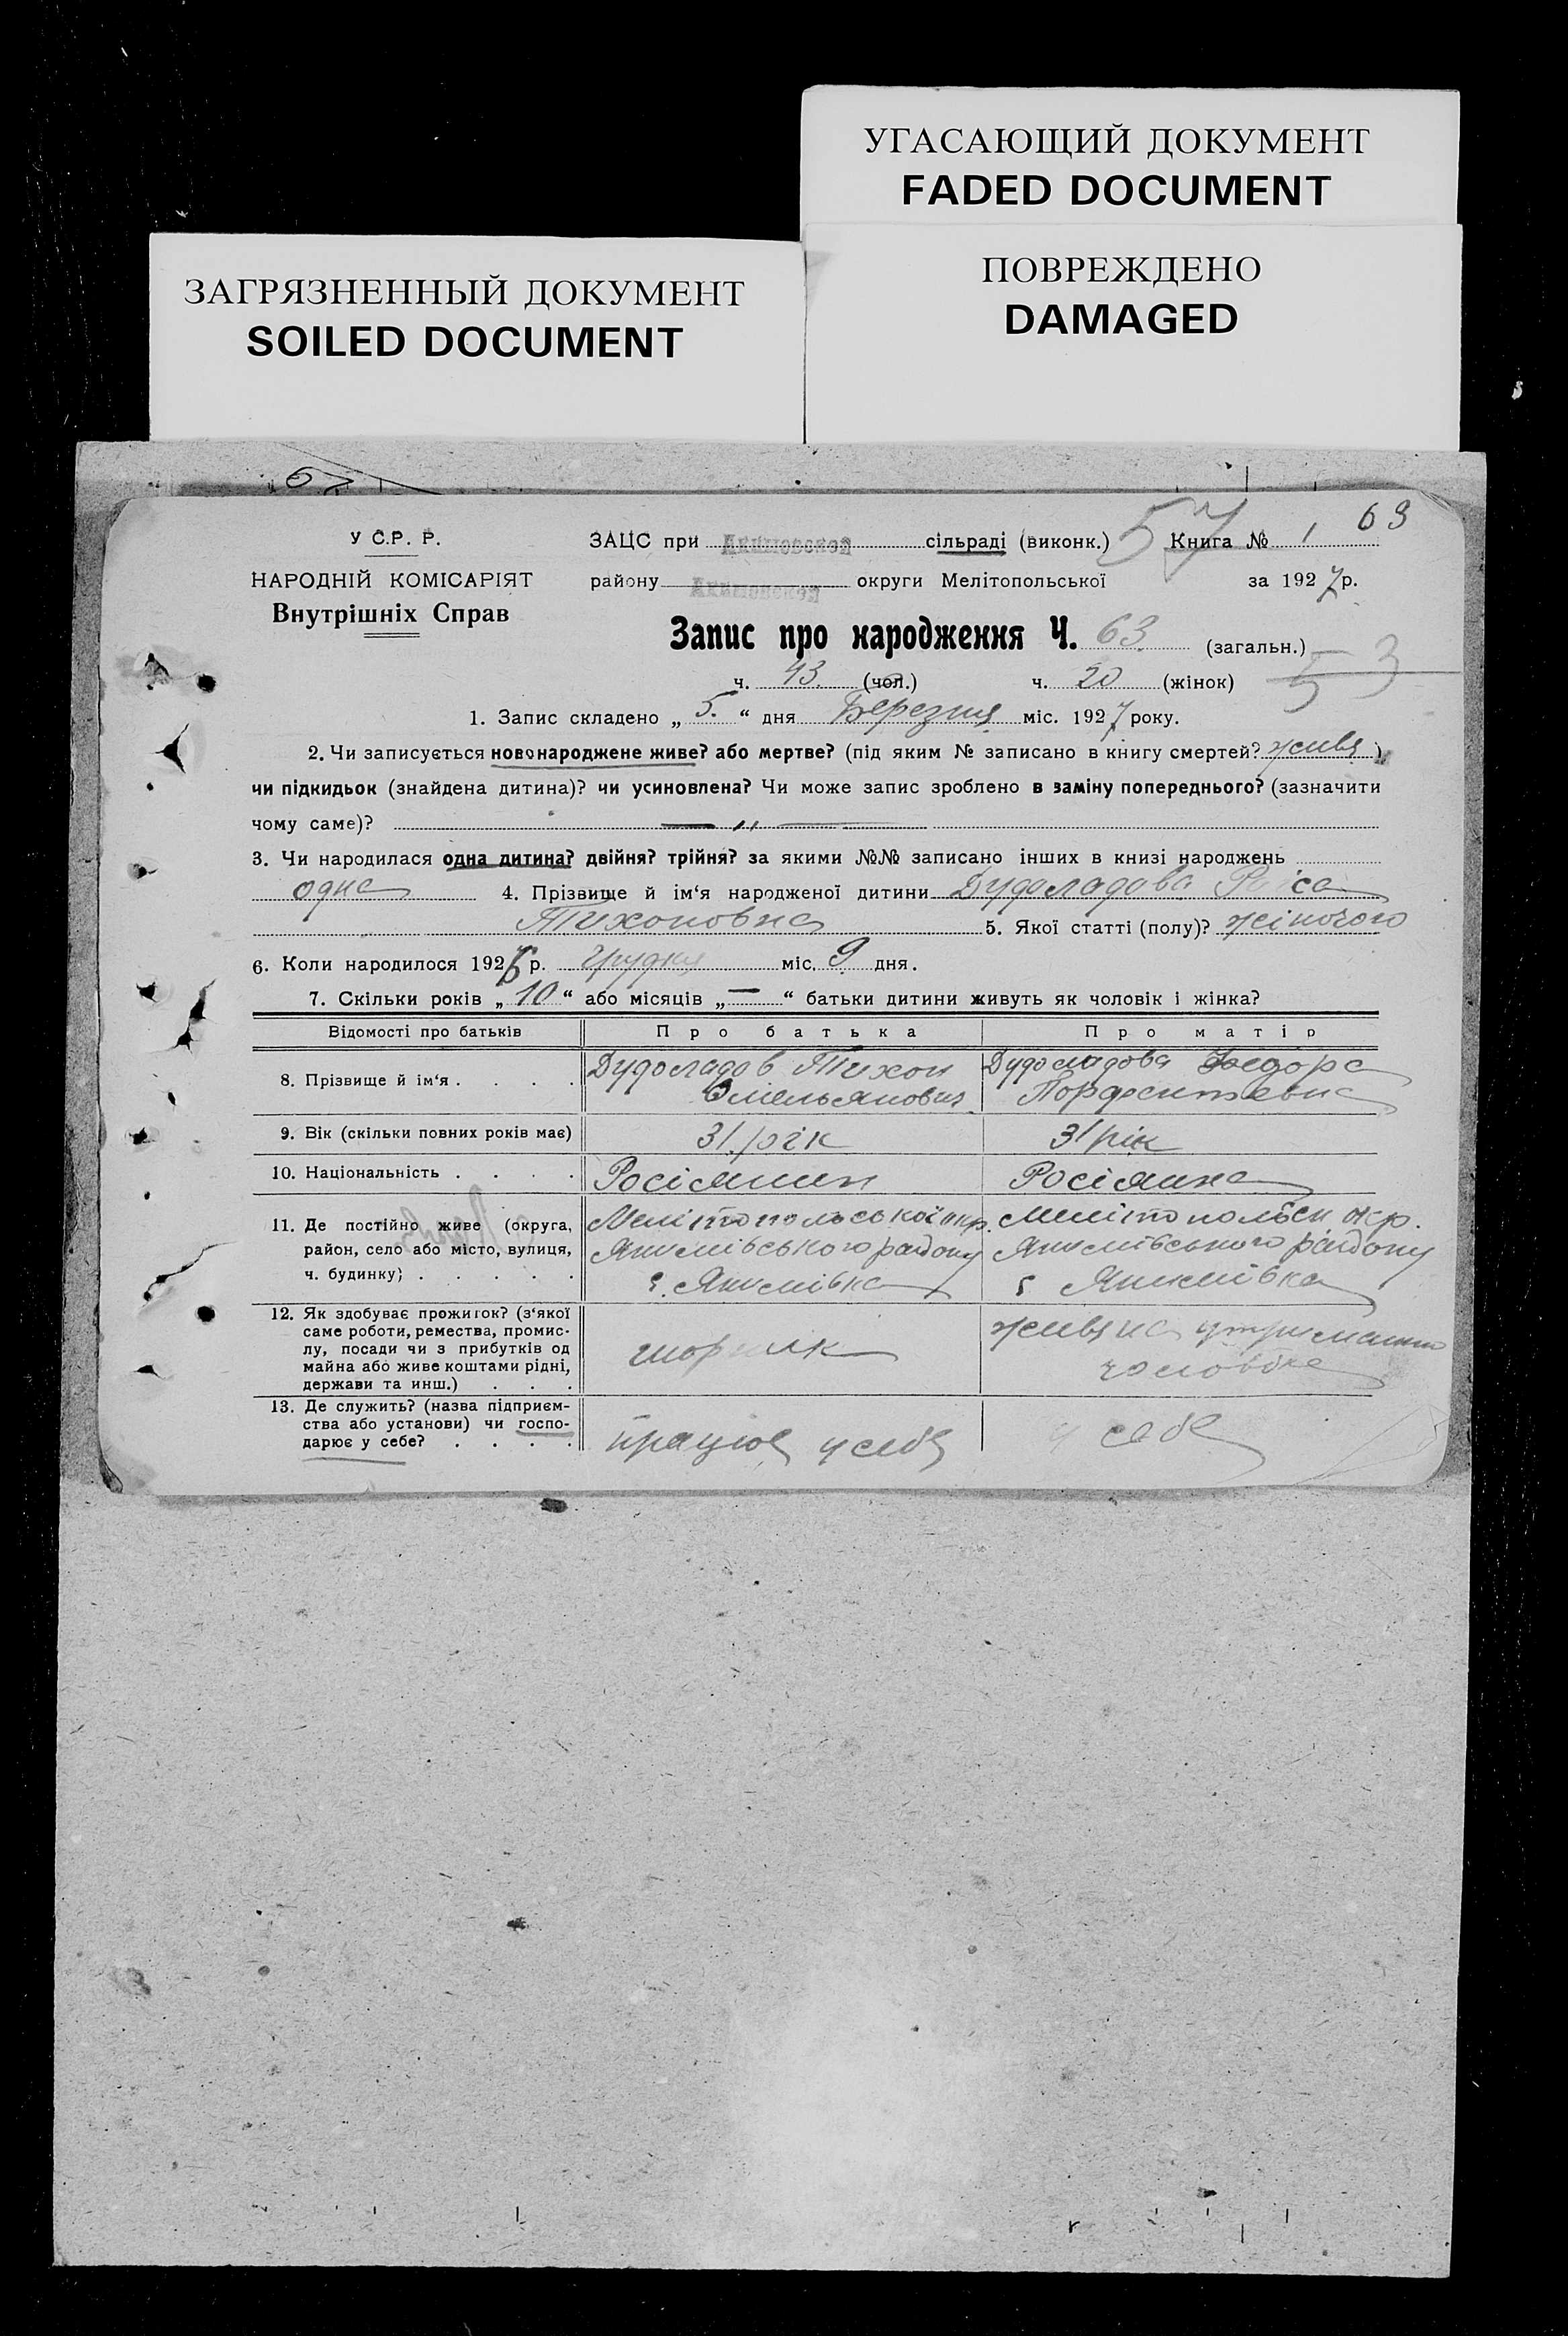 УГАСАЮЩИЙ ДОКУМЕНТ
FADED DOCUMENT
ПОВРЕЖДЕНО
DAMAGED
ЗАГРЯЗНЕННЫЙ ДОКУМЕНТ
SOILED DOCUMENT
57 63
У С.Р. Р. ЗАЦС при Акимовской сільраді (виконк.) Книга № 1
НАРОДНІЙ КОМІСАРІЯТ району Акимовской округи Мелітопольської за 1927 р.
Внутрішніх Справ
Запис про народження Ч. 63 (загальн.) 53
ч. 43. (чол.) ч. 20 (жінок)
1. Запис складено „ 5. “ дня Березня міс. 1927 року.
2. Чи записується новонароджене живе? або мертве? (під яким № записано в книгу смертей? живе)
чи підкидьок (знайдена дитина)? чи усиновлена? Чи може запис зроблено в заміну попереднього? (зазначити
чому саме)? — „ —
3. Чи народилася одна дитина? двійня? трійня? за якими №№ записано інших в книзі народжень
одна 4. Прізвище й ім‘я народженої дитини Дудоладова Раїса
Тихоновна 5. Якої статті (полу)? жіночого
6. Коли народилося 1926 р. Грудня міс. 9 дня.
7. Скільки років „ 10 “ або місяців „ — “ батьки дитини живуть як чоловік і жінка?
Відомості про батьків Про батька Про матір
8. Прізвище й ім‘я . . . . Дудоладов Тихон Омельянович Дудоладова Федора
9. Вік (скільки повних років має) 31 рік 31 рік
10. Національність . . . . Росіянин Росіянка
11. Де постійно живе (округа, Мелітопольської окр. Мелітопольськ окр.
район, село або місто, вулиця, Якимівського району Якимівського району
ч. будинку) . . . . . с. Якимівка с Якимівка
12. Як здобуває прожиток? (з‘якої
саме роботи, ремества, промис-
лу, посади чи з прибутків од шорник живе на утриманні
майна або живе коштами рідні, чоловіка
держави та инш.) . . .
13. Де служить? (назва підприєм-
ства або установи) чи госпо-
дарює у себе? . . . . працює у себе у себе